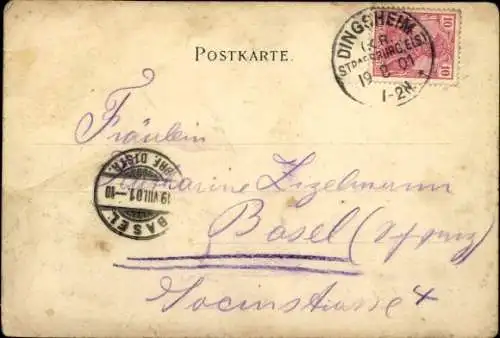 POSTKARTE.
10 10
DINGSHEIM
(KR. STRASSBURG ELS)
19 8 01
1-2N.
Fräulein
BASEL
19.VIII.01.-10
Katharine Zizelmann
Basel (Schweiz)
Socinstrasse 4